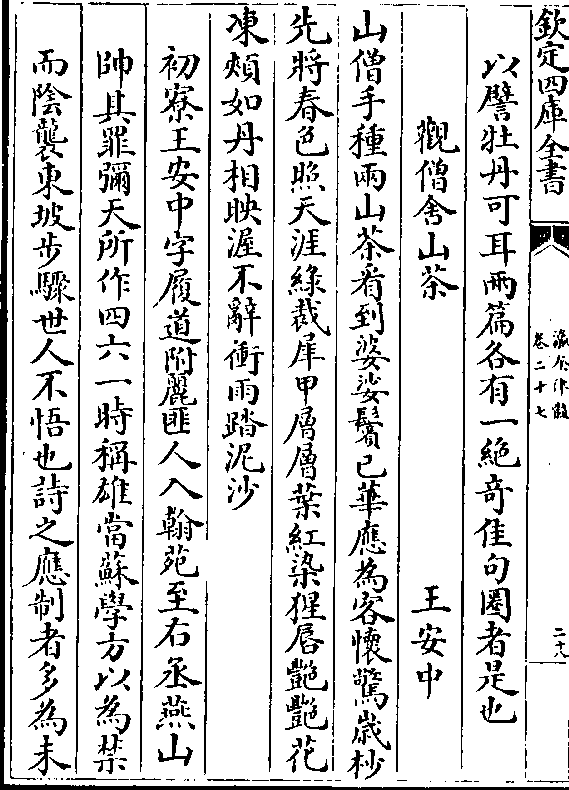 欽定四庫全書
瀛奎律髓
卷二十七
二十八
以譬牡丹可耳兩篇各有一絶竒佳句圏者是也
觀僧舍山茶
王安中
山僧手種兩山茶看到婆娑鬢已華應為客懷驚歲杪
先將春色照天涯綠裁犀甲層層葉紅染猩唇艷艷花
凍頰如丹相映渥不辭衝雨踏泥沙
初寮王安中字履道附麗匪人入翰苑至右丞燕山
帥其罪彌天所作四六一時稱雄當蘇學方以為禁
而陰襲東坡步驟世人不悟也詩之應制者多為未